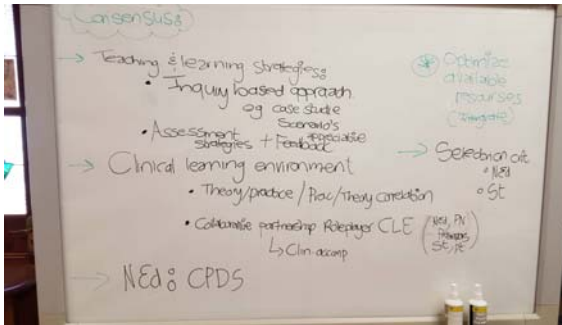 Consensus:
→ Teaching & learning strategies:
• Inquiry based approach
eg case studie
Scenario's
appreciable
• Assessment + Feedback
strategies
→ Clinical learning environment
• Theory/practice / Prac/Theory correlation
• Collaborative partnership Roleplayer CLE
(Ned, PN
St, pt)
↳ Clin. accomp
→ NEd: CPDS
* Optimize
available
resourses
→ Selection crit
• NEd
• St